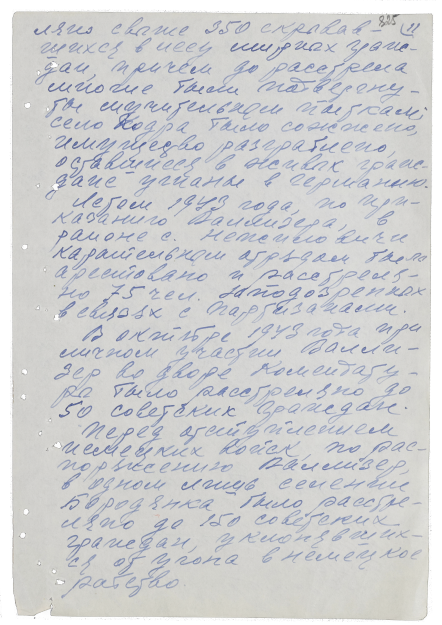 825 11
ляно свыше 350 скрывав-
шихся в лесу мирных граж-
дан, причем до расстрела
многие были подвергну-
ты мучительным пыткам,
село Кодра было сожжено,
имущество разграблено,
оставшиеся в живых граж-
дане угнаны в Германию.
Летом 1943 года, по при-
казанию Валлизера, в
районе с. Нежиловичи
карательным отрядом было
арестовано и расстреля-
но 75 чел. заподозренных
в связях с партизанами.
В октябре 1943 года при
личном участии Валли-
зер во дворе коменда­ту-
ры было расстреляно до
50 советских граждан.
Перед отступлением
немецких войск, по рас-
поряжению Валлизер,
в одном лишь селении
Бородянка было расстре-
ляно до 150 советских
граждан, уклонявших-
ся от угона в немецкое
рабство.